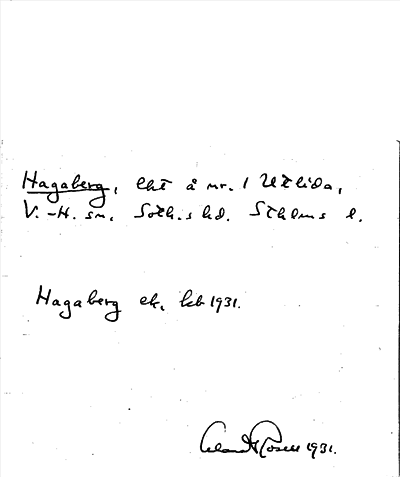 Hagaberg, lht å nr. 1 Utlida,
V.-H. sn. Soth.s hd. Sthlms l.
Hagaberg ek. kb 1931.
Rosell 1931.